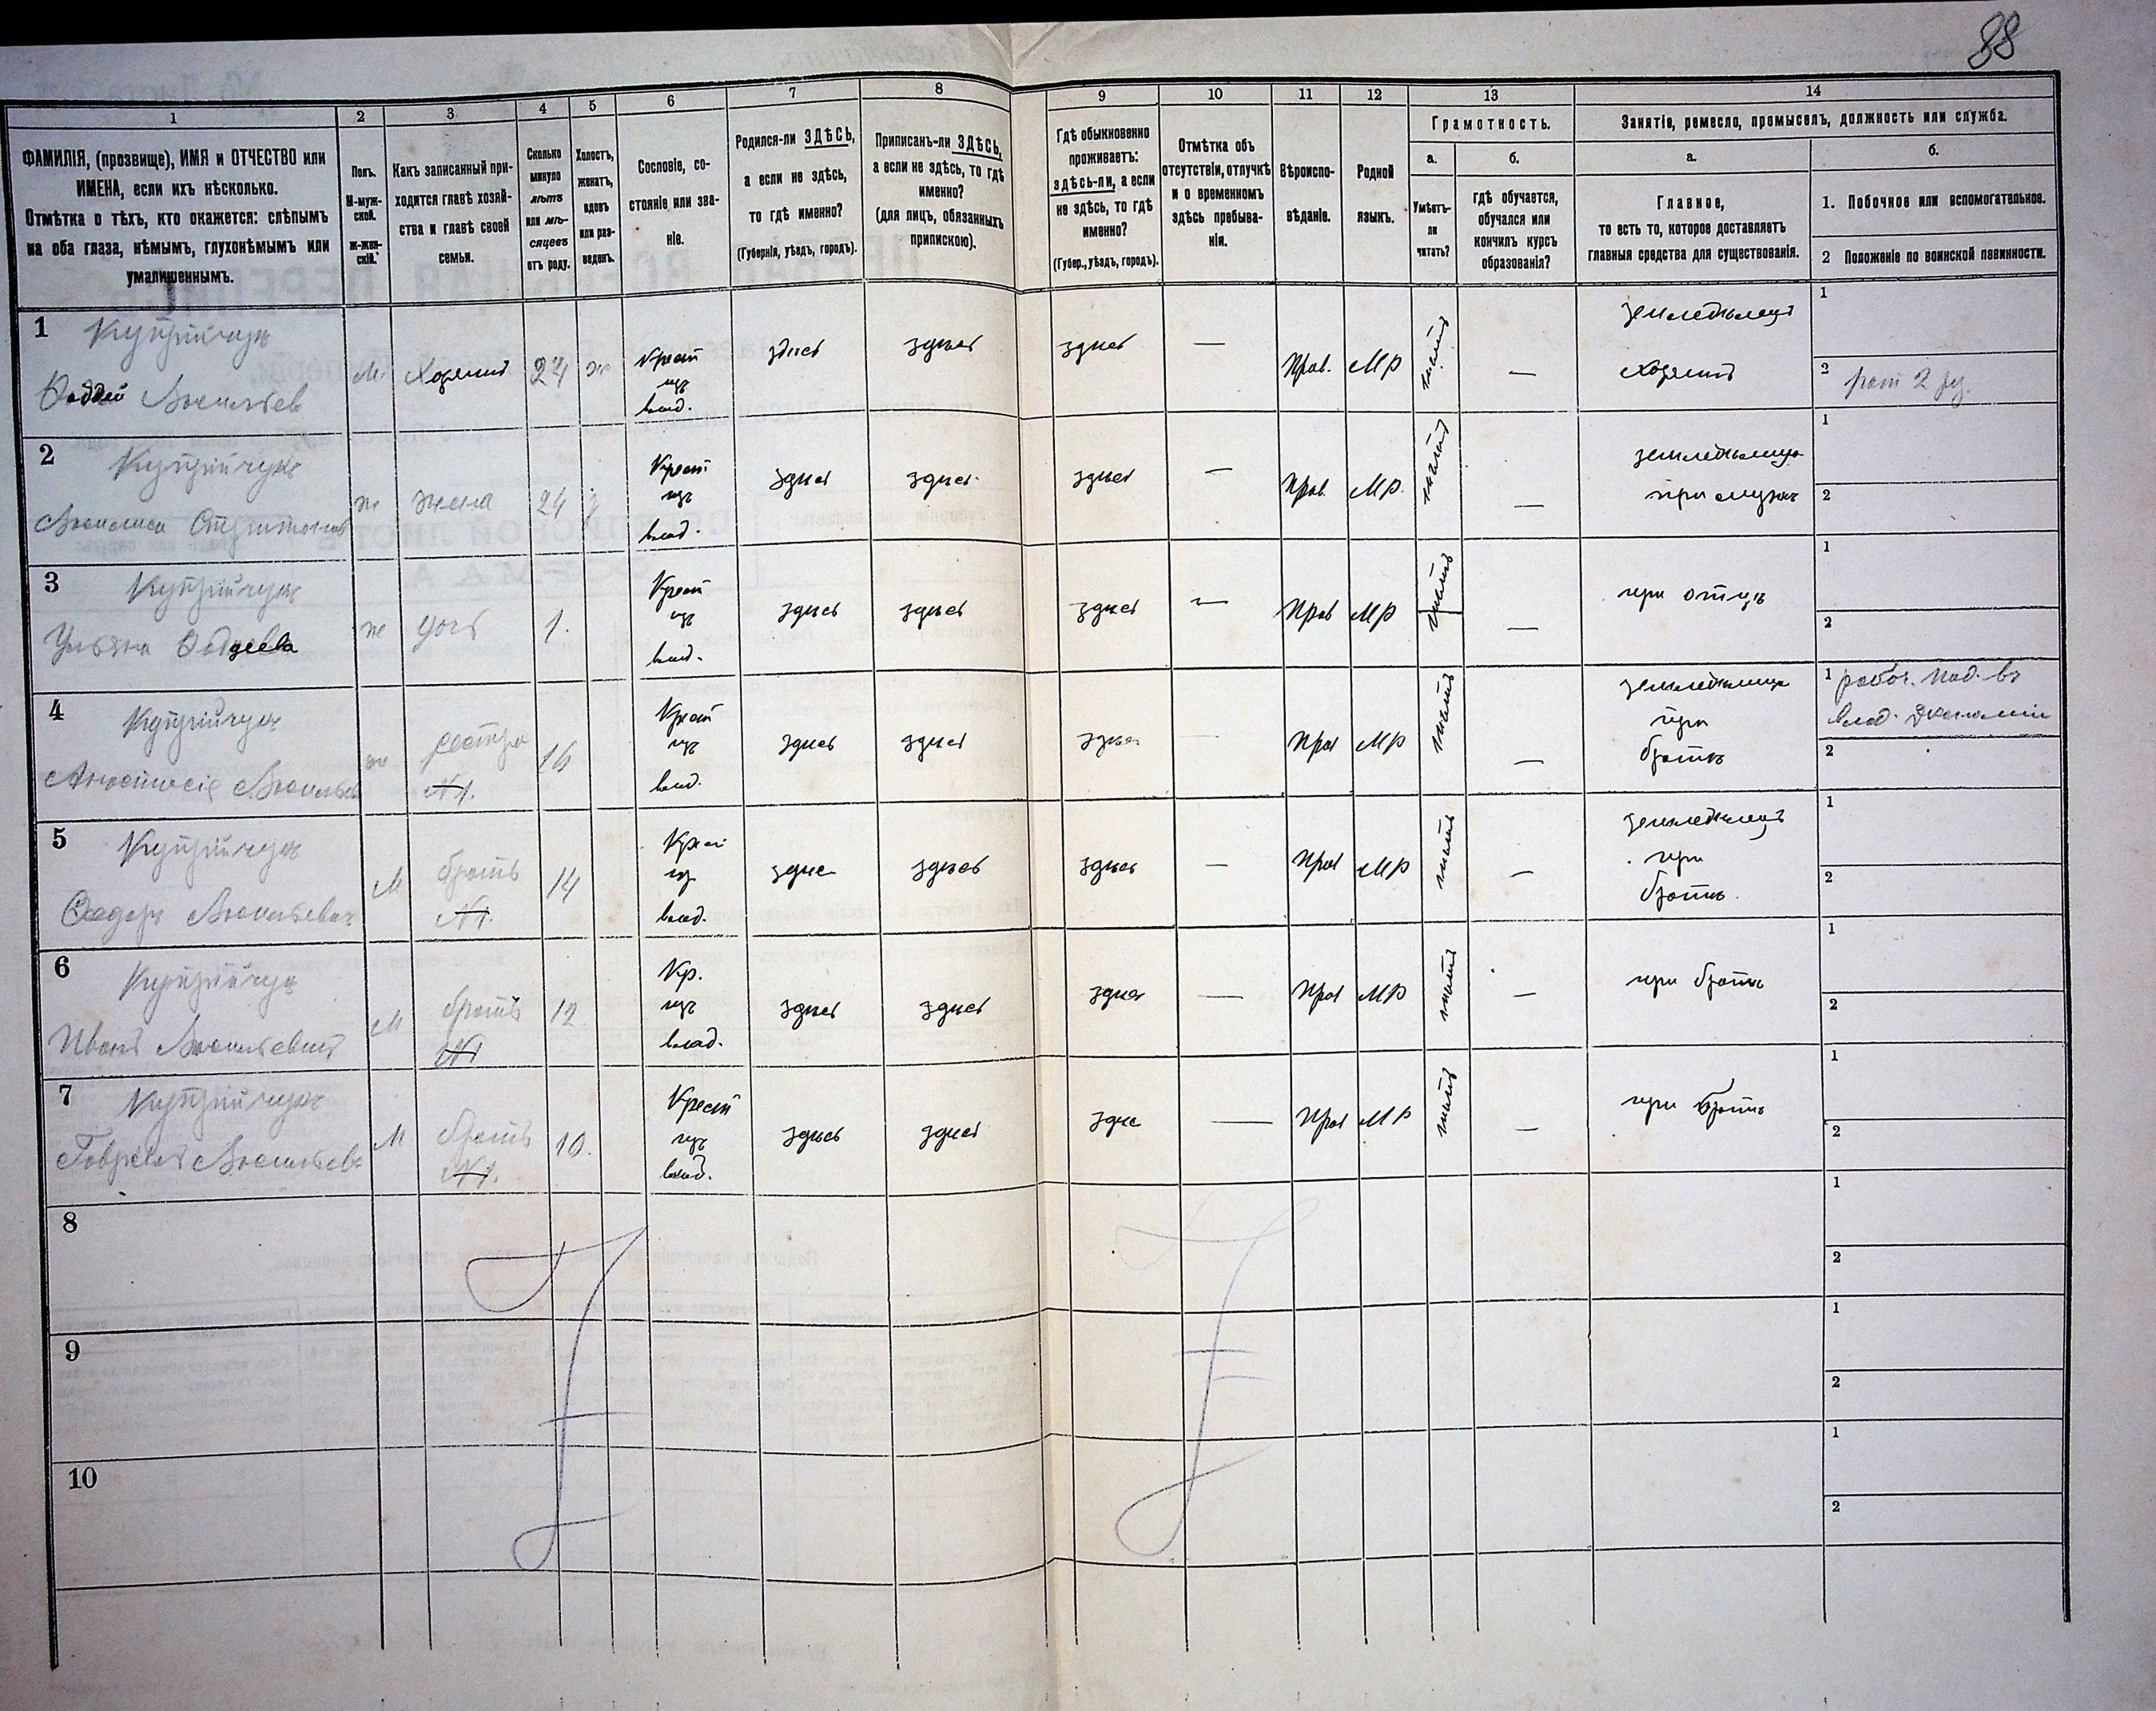 88
1
2
3
4
5
6
7
8
9
10
11
12
13
14
ФАМИЛІЯ, (прозвище), ИМЯ и ОТЧЕСТВО или
ИМЕНА, если ихъ нѣсколько.
Отмѣтка о тѣхъ, кто окажется: слѣпымъ
на оба глаза, нѣмымъ, глухонѣмымъ или
умалишеннымъ.
Полъ.
М-муж-
ской.
ж-жен-
скій.
Какъ записанный при-
ходится главѣ хозяй-
ства и главѣ своей
семьи.
Сколько
минуло
лѣтъ
или мѣ-
сяцевъ
отъ роду.
Холостъ,
женатъ,
вдовъ
или раз-
веденъ.
Сословіе, со-
стояніе или зва-
ніе.
Родился-ли ЗДѢСЬ,
а если не здѣсь,
то гдѣ именно?
(Губернія, уѣздъ, городъ).
Приписанъ-ли ЗДѢСЬ,
а если не здѣсь, то гдѣ
именно?
(для лицъ, обязанныхъ
припискою).
Гдѣ обыкновенно
проживаетъ:
здѣсь-ли, а если
не здѣсь, то гдѣ
именно?
(Губер., уѣздъ, городъ).
Отмѣтка объ
отсутствіи, отлучкѣ
и о временномъ
здѣсь пребыва-
ніи.
Вѣроиспо-
вѣданіе.
Родной
языкъ.
Грамотность.
а.
Умѣетъ-
ли
читать?
б.
гдѣ обучается,
обучался или
кончилъ курсъ
образованія?
Занятіе, ремесло, промыселъ, должность или служба.
а.
Главное,
то есть то, которое доставляетъ
главныя средства для существованія.
б.
1. Побочное или вспомогательное.
2 Положеніе по воинской повинности.
1 Купрійчукъ
Овдей Васильев
М. Хозяинъ 24 ж
Крест
изъ
влад.
здѣсь здѣсь здѣсь — Прав. МР нѣтъ —
земледѣлецъ
хозяинъ
1
2 рат 2 рз.
2 Купрійчукъ
ж жена 24 з
Крест
изъ
влад.
здѣсь здѣсь здѣсь — Прав. МР. нѣтъ —
земледѣлица
при мужѣ
1
2
3 Купрійчукъ
Ульяна Овдеева
ж дочь 1.
Крест
изъ
влад.
здѣсь здѣсь здѣсь — Прав МР нѣтъ —
при отцѣ
1
2
4 Купрійчукъ
Анастасія Васильев
ж сестра 16
№1.
Крест
изъ
влад.
здѣсь здѣсь здѣсь — Прав МР нѣтъ —
земледѣлица
при
братѣ
1 работ. под. въ
влад. экономіи
2
5 Купрійчукъ
Федоръ Васильевич
М братъ 14
№1.
Крест
из
влад.
здѣс здѣсь здѣсь — Прав МР нѣтъ —
земледѣлецъ
при
братѣ.
1
2
6 Купрійчук
Иванъ Васильевичъ
М братъ 12.
№1
Кр.
изъ
влад.
здѣсь здѣсь здѣсь — Прав МР нѣтъ —
при братѣ
1
2
7 Купрійчукъ
Гавріилъ Васильев
М братъ 10.
№1.
Крест
изъ
влад.
здѣсь здѣсь здѣс — Прав МР нѣтъ —
при братѣ
1
2
8
1
2
9
1
2
10
1
2